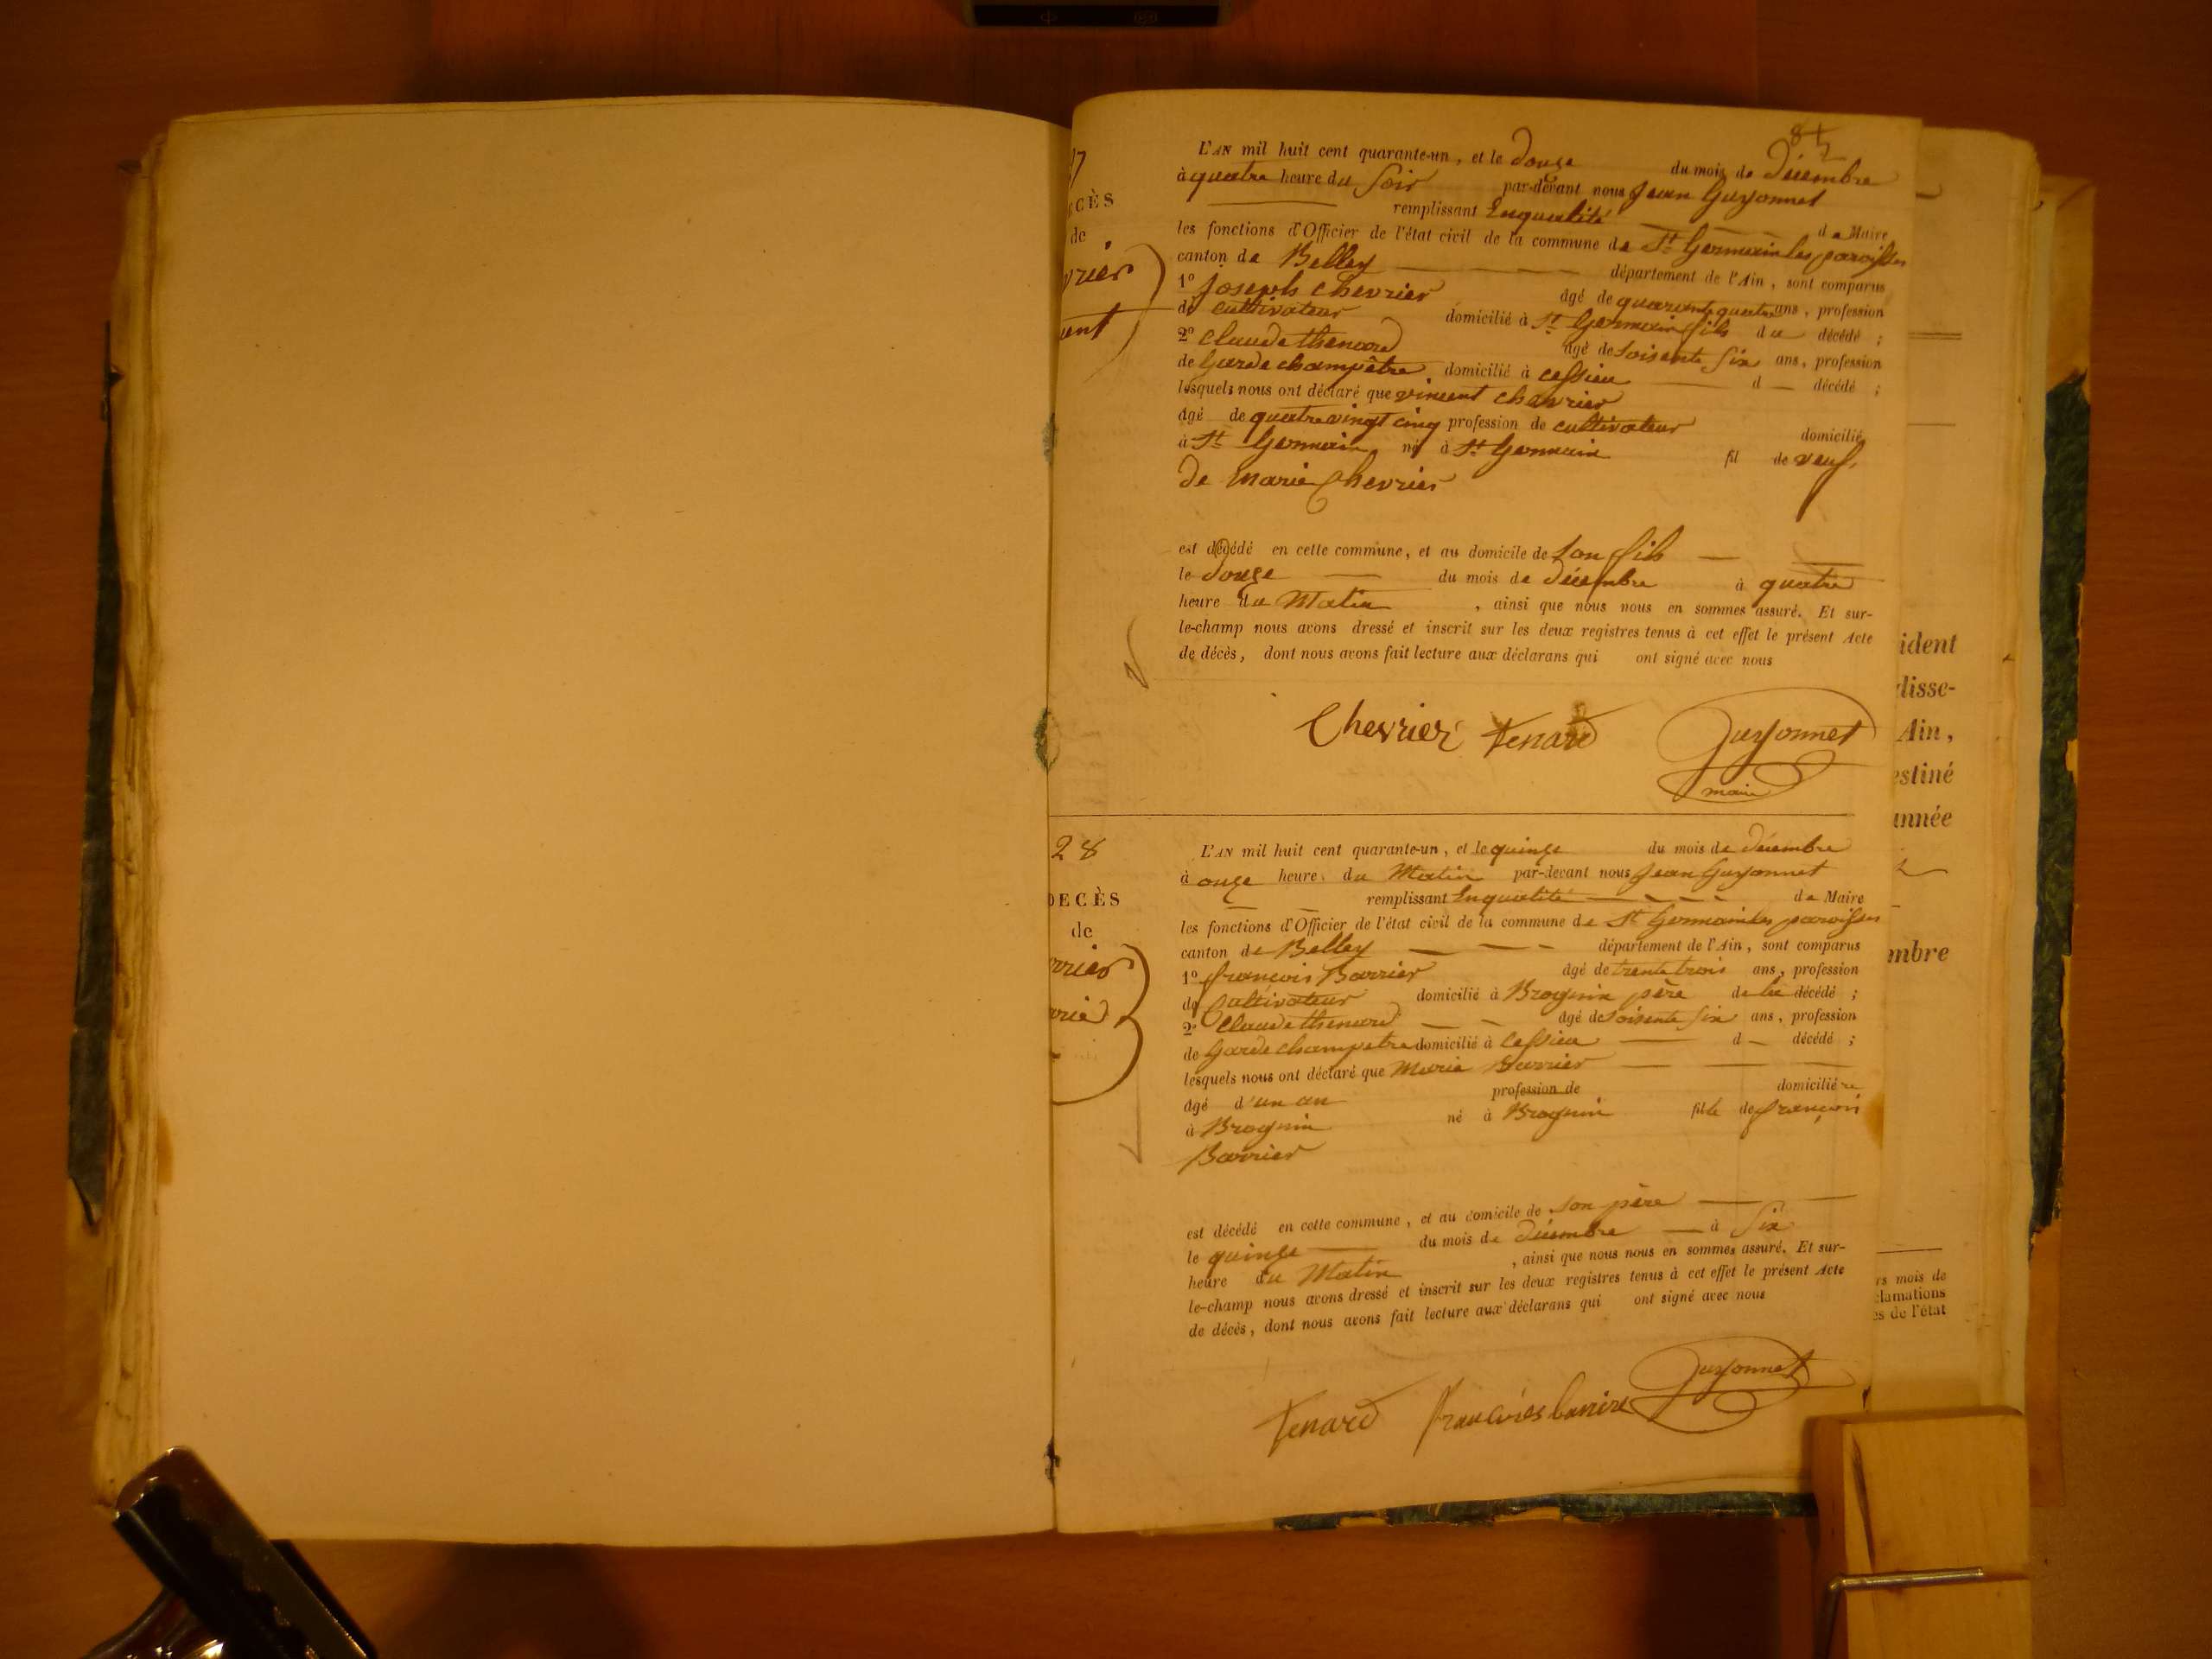 84
27
DÉCÈS
de
vrier
cent
L'AN mil huit cent quarante-un, et le Douze du mois de Décembre
à quatre heure du Soir par-devant nous Jean Guyonnet
remplissant Enqualité de Maire
les fonctions d'Officier de l'état civil de la commune de St Germain les paroisses
canton de Belley département de l'Ain, sont comparus
1º Joseph Chevrier âgé de quarante quatre ans, profession
de cultivateur domicilié à St Germain fils du décédé ;
2º Claude thenard âgé de soisente six ans, profession
de Garde champêtre domicilié à cessieu d décédé ;
lesquels nous ont déclaré que vincent chevrier
âgé de quatre vingt cinq profession de cultivateur domicilié
à St Germain né à St Germain fil de veuf
de Marie Chevrier
est décédé en cette commune, et au domicile de Son fils
le Douze du mois de Décembre à quatre
heure du Matin , ainsi que nous nous en sommes assuré. Et sur-
le-champ nous avons dressé et inscrit sur les deux registres tenus à cet effet le présent Acte
de décès, dont nous avons fait lecture aux déclarans qui ont signé avec nous
Chevrier tenard Guyonnet
maire
28
DECÈS
de
rrier
arie
L'AN mil huit cent quarante-un, et le quinze du mois de décembre
à onze heure du Matin par-devant nous Jean Guyonnet
remplissant Enqualité de Maire
les fonctions d'Officier de l'état civil de la commune de St Germain les paroisses
canton de Belley département de l'Ain, sont comparus
1º françois Barrier âgé de trente trois ans, profession
de Cultivateur domicilié à Brognin père de la décédé ;
2º Claude thenard âgé de soisente six ans, profession
de Garde champetre domicilié à Cessieu d décédé ;
lesquels nous ont déclaré que Marie Barrier
âgé d'un an profession de domicilié
à Brognin né à Brognin fille de françois
Barrier
est décédé en cette commune, et au domicile de son père
le quinze du mois de décembre à Six
heure du Matin , ainsi que nous nous en sommes assuré. Et sur-
le-champ nous avons dressé et inscrit sur les deux registres tenus à cet effet le présent Acte
de décès, dont nous avons fait lecture aux déclarans qui ont signé avec nous
tenard françoies barrire Guyonnet
ident
disse-
Ain,
estiné
année
mbre
rs mois de
clamations
es de l'état